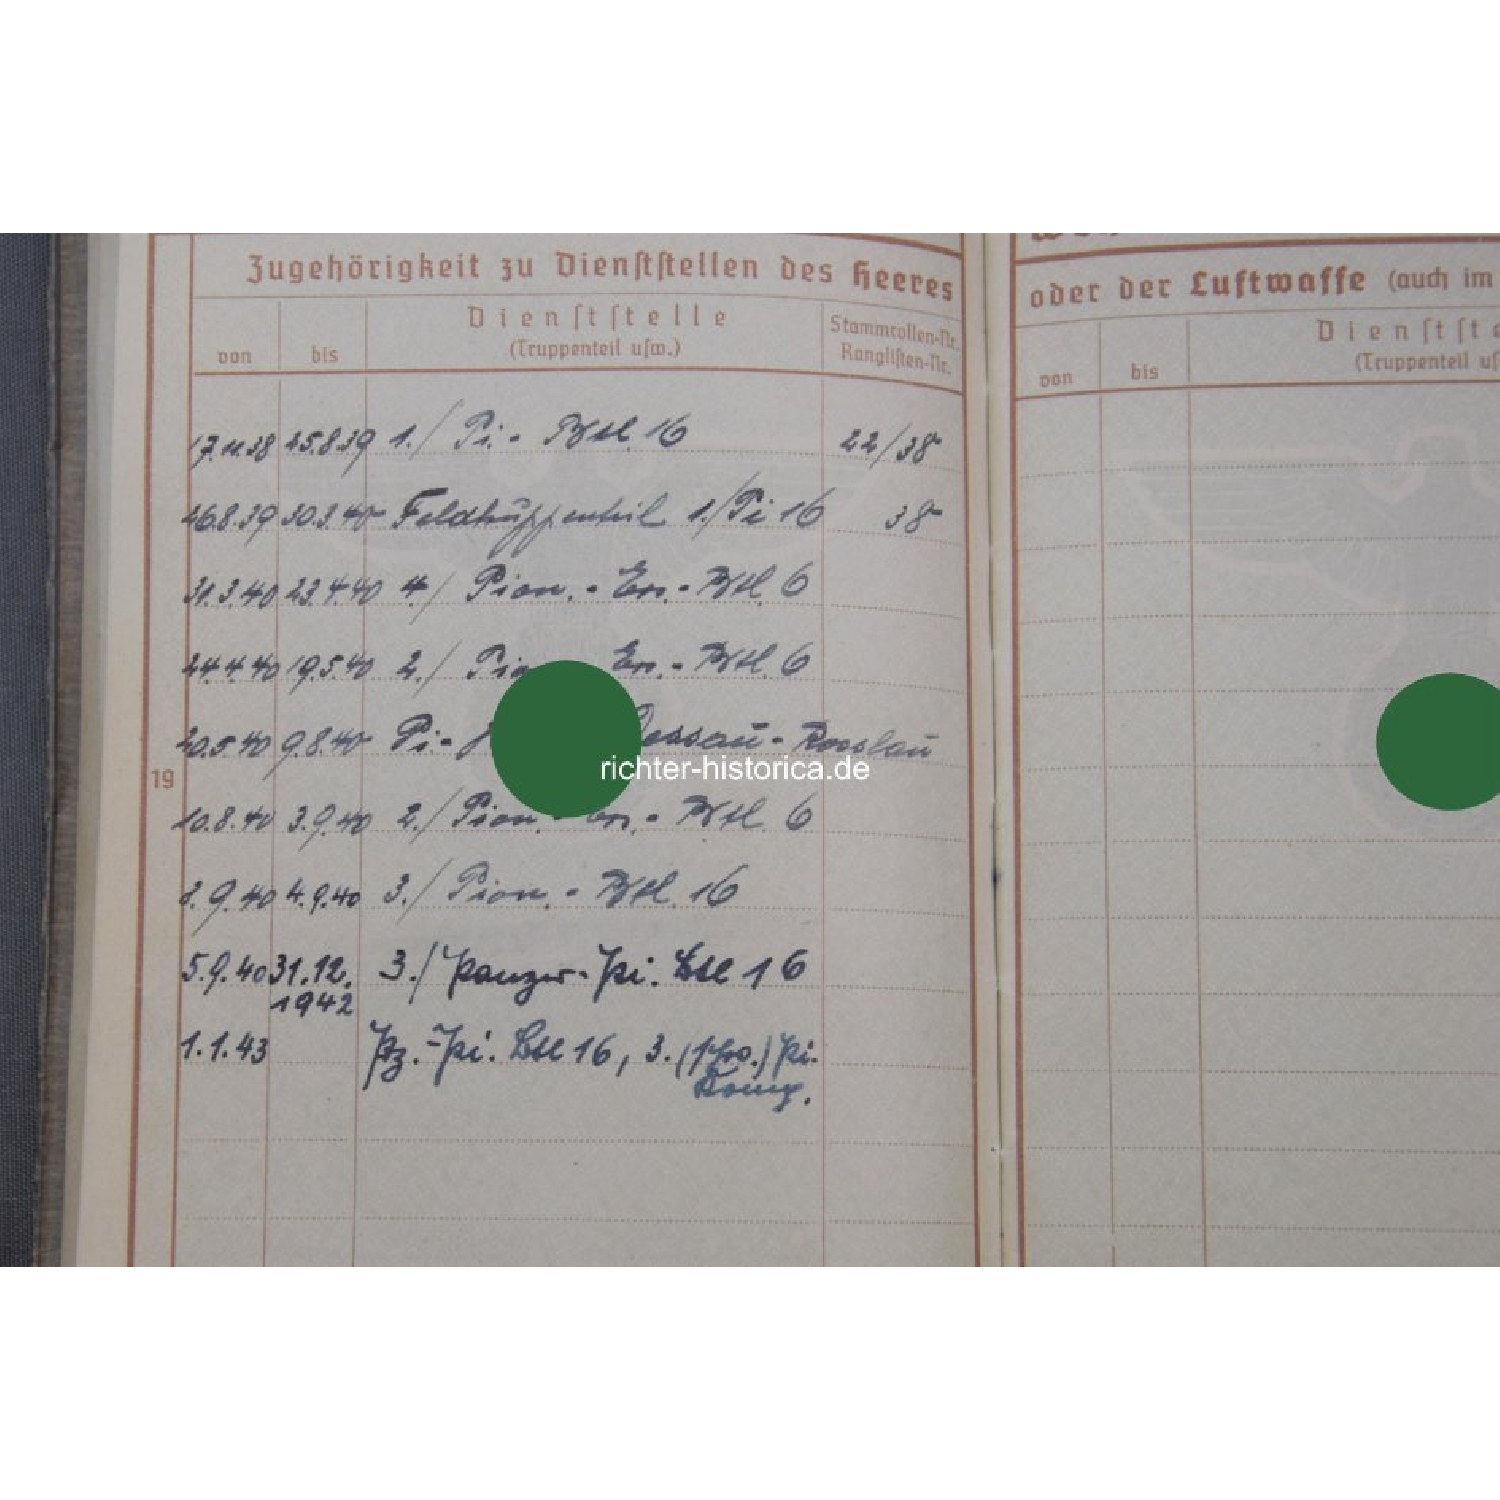 Zugehörigkeit zu Dienststellen des Heeres
von bis Dienststelle Stammrollen-Nr.
(Truppenteil usw.) Ranglisten-Nr.
17.11.38 25.8.39 1./ Pi.- Btl. 16 22/38
26.8.39 30.3.40 Feldtruppenteil 1./Pi 16 38
31.3.40 23.4.40 4./ Pion.- Ers.- Btl. 6
24.4.40 19.5.40 2./ Ers.- Btl. 6
20.5.40 9.8.40 Pi- Dessau-Rosslau
richter-historica.de
19
10.8.40 3.9.40 2./ Pion.- Ers.- Btl. 6
9.40 4.9.40 3./ Pion.- Btl. 16
5.9.40 31.12. 3./ Panzer-Pi. Btl 16
1942
1.1.43 Pz.-Pi. Btl 16, 3. Pi.
Komp.
oder der Luftwaffe (auch im
von bis
(Truppenteil